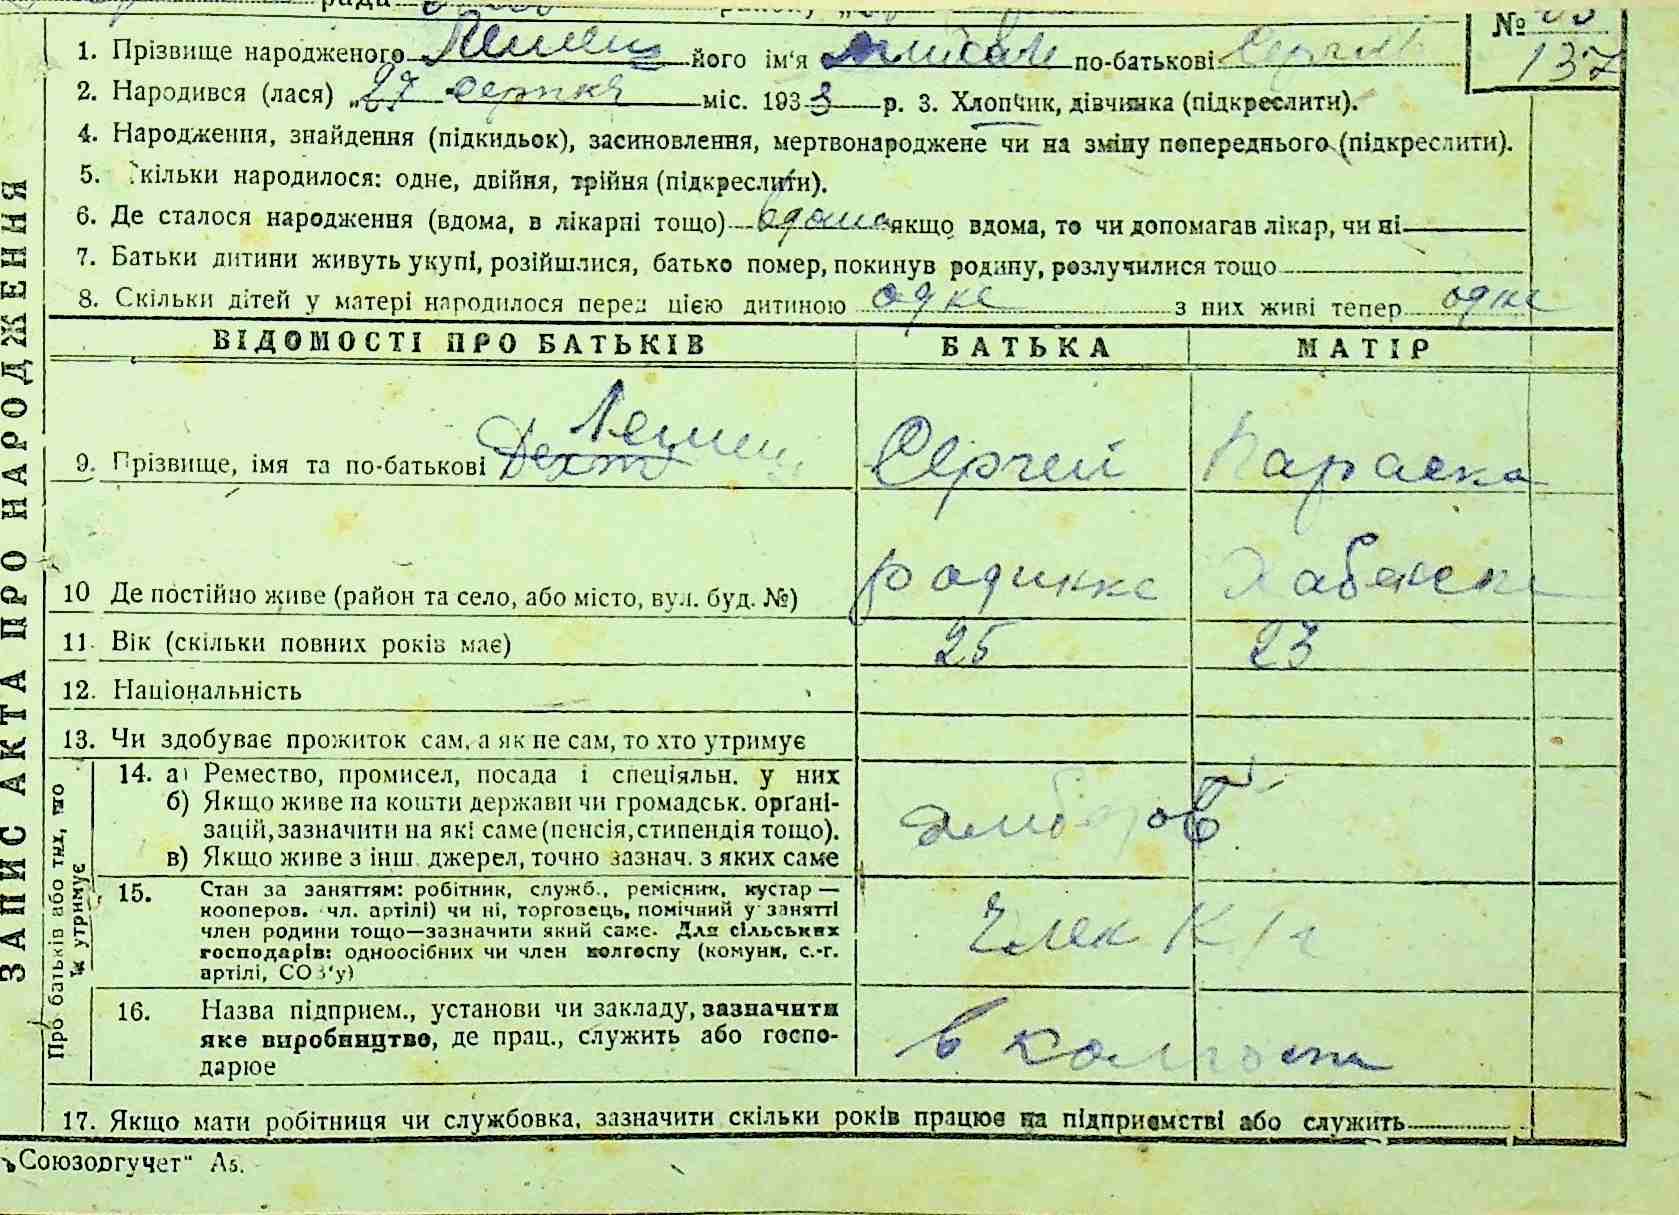 рада
№ 137
1. Прізвище народженого Лемеш його ім'я по-батькові Сергій
2. Народився (лася) „27 серпня міс. 1933 р. 3. Хлопчик, дівчинка (підкреслити).
4. Народження, знайдення (підкидьок), засиновлення, мертвонароджене чи на зміну попереднього (підкреслити).
5. Скільки народилося: одне, двійня, трійня (підкреслити).
6. Де сталося народження (вдома, в лікарні тощо) вдома якщо вдома, то чи допомагав лікар, чи ні
7. Батьки дитини живуть укупі, розійшлися, батько помер, покинув родину, розлучилися тощо
8. Скільки дітей у матері народилося перед цією дитиною одне з них живі тепер одне
ЗАПИС АКТА ПРО НАРОДЖЕННЯ
ВІДОМОСТІ ПРО БАТЬКІВ БАТЬКА МАТІР
9. Прізвище, імя та по-батькові Сергей Параска
10 Де постійно живе (район та село, або місто, вул. буд. №)
11. Вік (скільки повних років має) 25 23
12. Національність
13. Чи здобуває прожиток сам, а як не сам, то хто утримує
Про батьків або тих, що їх утримує
14. а) Ремество, промисел, посада і спеціяльн. у них
б) Якщо живе на кошти держави чи громадськ. орґані-
зацій, зазначити на які саме (пенсія, стипендія тощо).
в) Якщо живе з інш. джерел, точно зазнач. з яких саме
хлібороб
15. Стан за заняттям: робітник, служб., ремісник, кустар —
кооперов. чл. артілі) чи ні, торговець, помічний у занятті
член родини тощо—зазначити який саме. Для сільських
господарів: одноосібних чи член колгоспу (комуни, с.-г.
артілі, СОЗ'у)
Член К/г
16. Назва підприєм., установи чи закладу, зазначити
яке виробництво, де прац., служить або госпо-
дарює
в колгоспі
17. Якщо мати робітниця чи службовка, зазначити скільки років працює на підприємстві або служить
„Союзоргучет" А5.